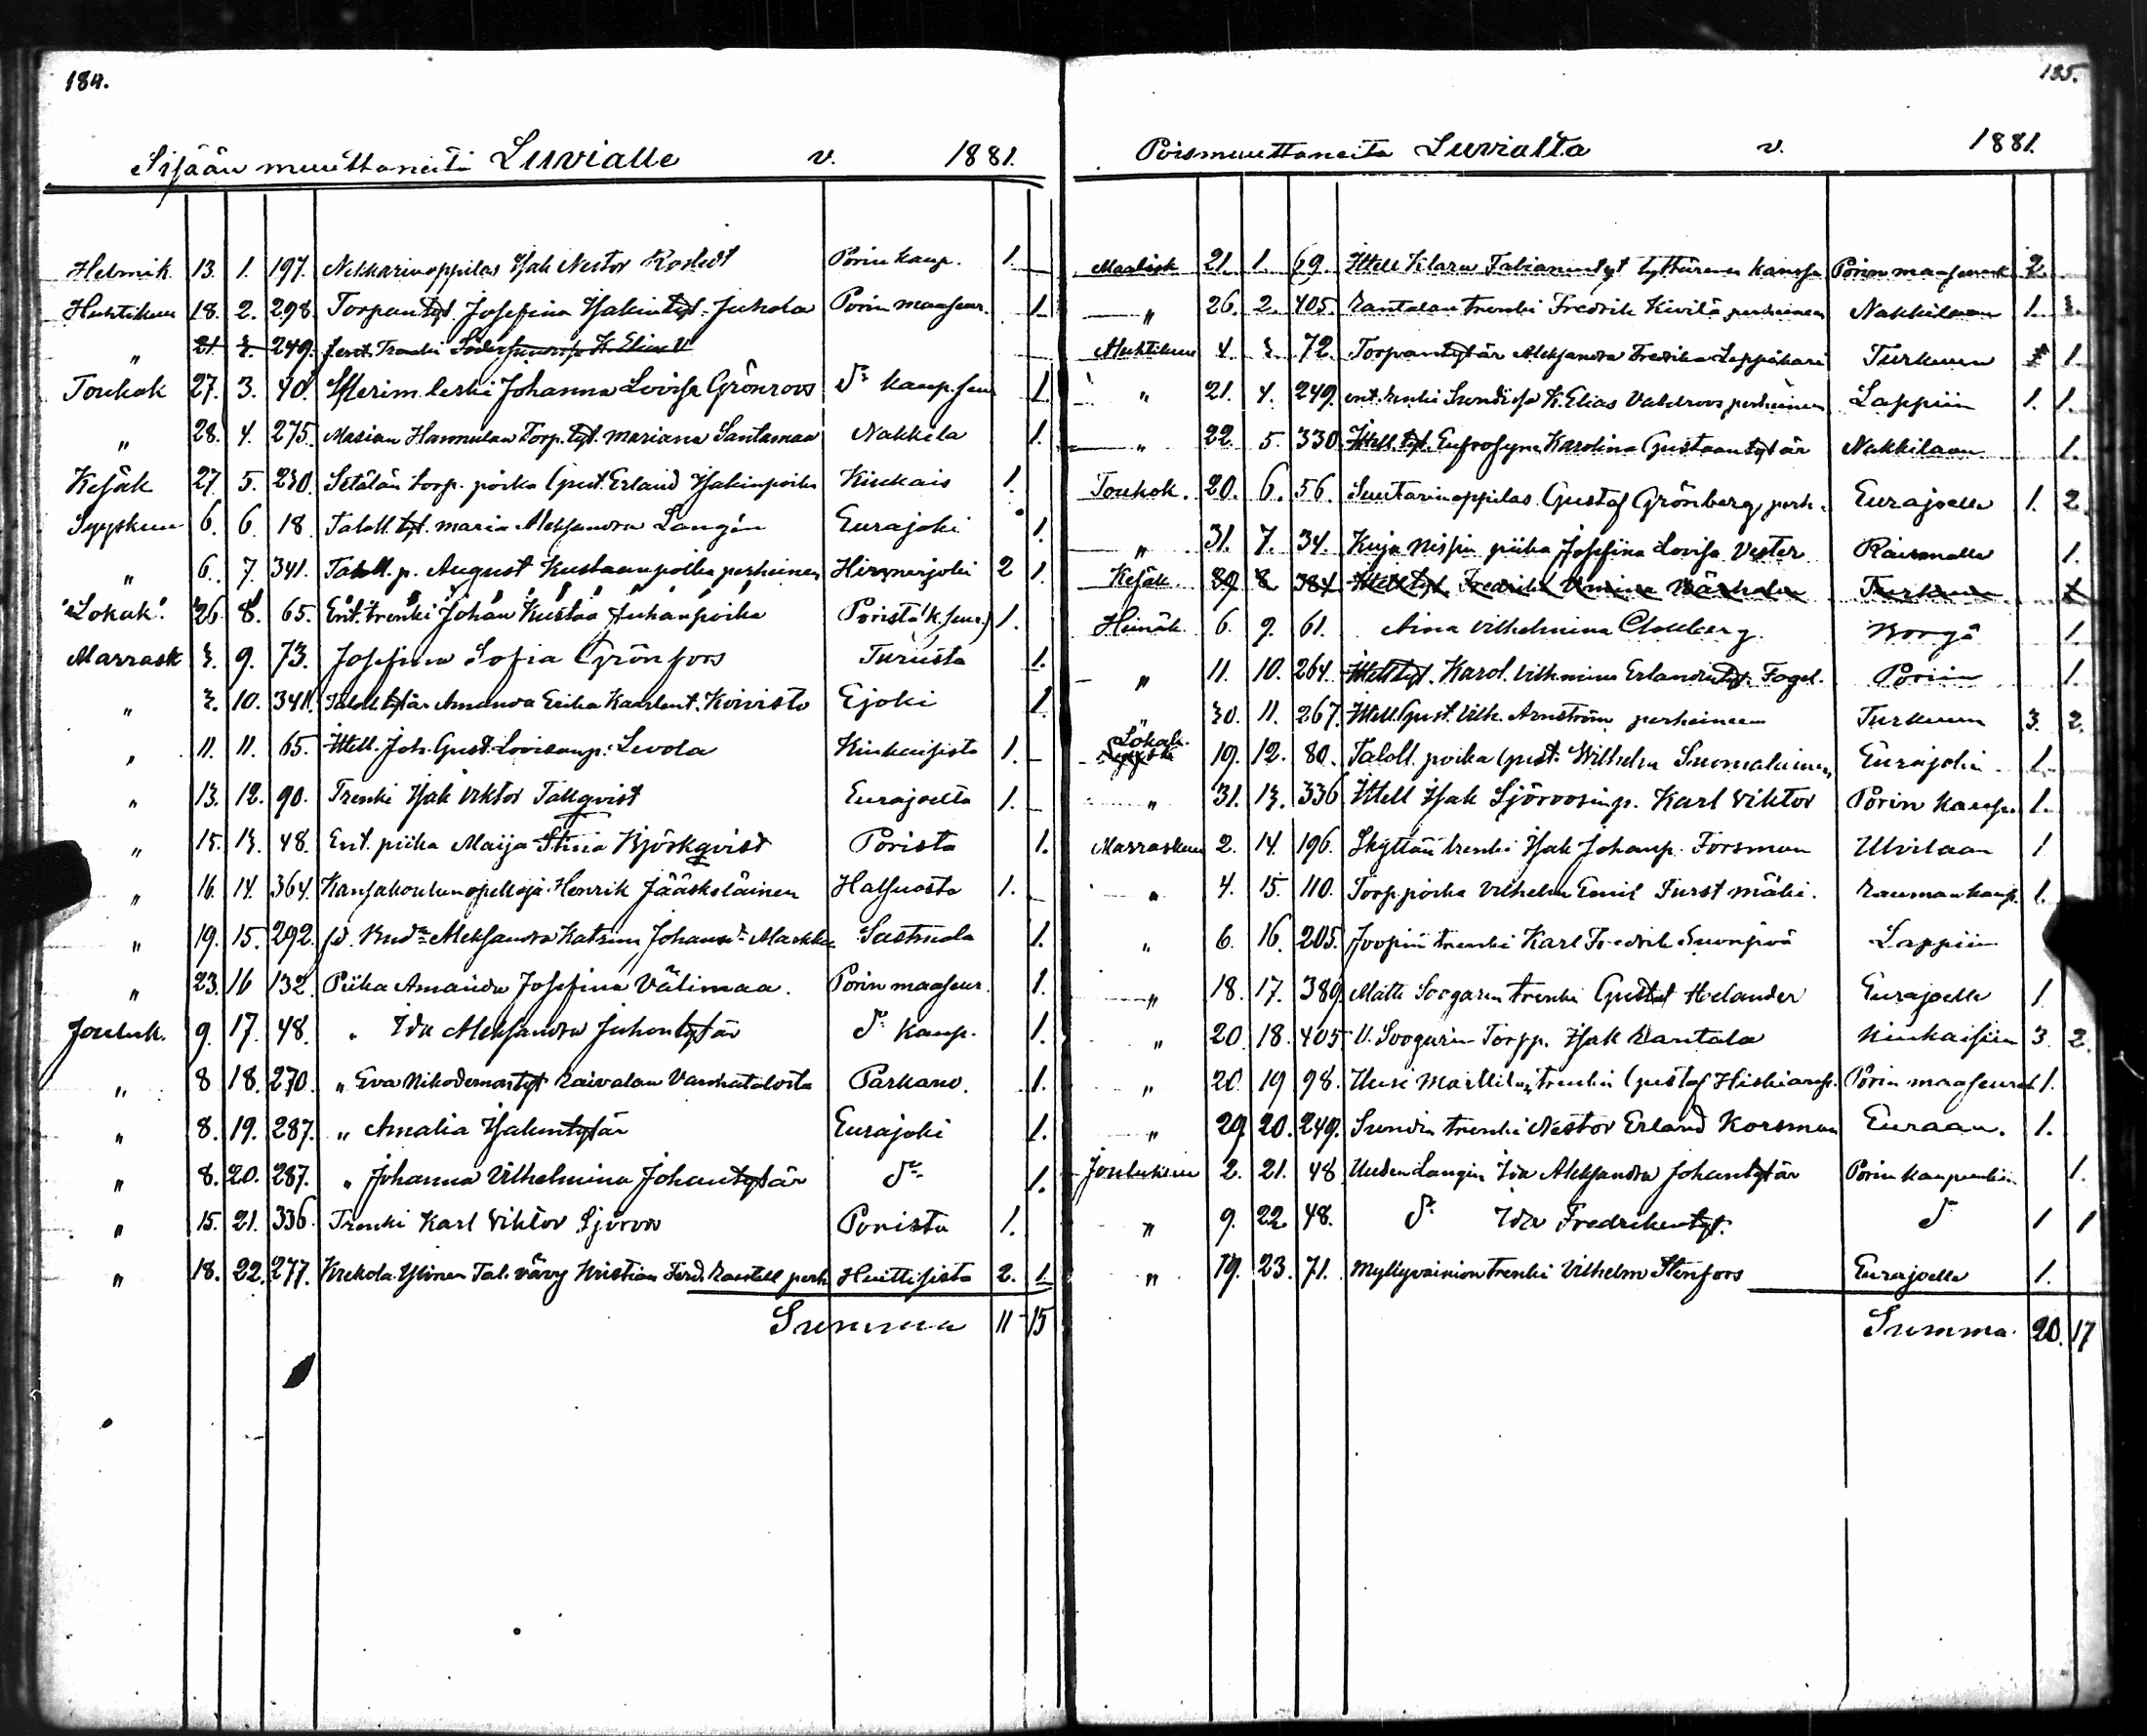 184.
Sisään muuttaneita Luvialle v. 1881.
Helmik. 13. 1. 197. Nekkarinoppilas Isak Nestor Rostedt Porin kaup. 1.
Huhtikuu 18. 2. 298. Torpantyt. Josefina Isakintyt. Juhola Porin maaseur. 1.
„ 21 3. 249. Trenki K. Elias V
Toukok 27. 3. 40. leski Johanna Lovisa Grönroos d:o kaup. seu 1.
„ 28. 4. 275. Masian Hannulan Torp. tyt. Mariana Santamaa Nakkila 1.
Kesäk 27. 5. 230. Setälän torp. poika Gust. Erland Isakinpoika Kiukais 1.
Syyskuu 6. 6. 18. Taloll. tyt. Maria Aleksandra Langén Eurajoki 1.
„ 6. 7. 341. Taloll. p. August Kustaanpoika perheinen Hinnerjoki 2 1.
Lokak. 26 8. 65. Ent. trenki Johan Kustaa Juhanpoika Porista (k. seur.) 1.
Marrask 3. 9. 73. Josefina Sofia Grönfors Turusta 1.
„ 3. 10. 341. Taloll. tytär Amanda Erika Kaarlent. Koivisto Ejoki 1.
„ 11. 11. 65. Ittell. Joh. Gust. Lovisanp. Levola Kiukaisista 1.
„ 13. 12. 90. Trenki Isak Viktor Tallqvist Eurajoelta 1.
„ 15. 13. 48. Ent. piika Maija Stina Björkqvist Porista 1.
„ 16. 14. 364. Kansakoulunopettaja Henrik Jääskeläinen Halsuasta 1.
„ 19. 15. 292. Aleksandra Katrina Johansd:r Markku Sastmola 1.
„ 23. 16 132. Piika Amanda Josefina Välimaa. Porin maaseur. 1.
Jouluk. 9. 17. 48. „ Ida Aleksandra Juhontytär d:o kaup. 1.
„ 8 18. 270. „ Eva Nikodemustyt Raivalan Vanhatalosta Parkano. 1.
„ 8. 19. 287. „ Amalia Isakintytär Eurajoki 1.
„ 8. 20. 287. „ Johanna Vilhelmina Johantytär d:o 1.
„ 15. 21. 336. Trenki Karl Viktor Sjöroos Porista 1.
„ 18. 22. 277. Krekola Ylinen Tal. Kristian Ferd. perh Huittisista 2. 1.
Summa 11 15
185.
Poismuuttaneita Luvialta v. 1881.
Maalisk 21. 1. 69. Ittell Klara Fabianintyt tyttärensä kanssa Porin maaseurak 2
„ 26. 2. 405. Rantalan trenki Fredrik Kivilä perheinen Nakkilaan 1. 3.
Huhtikuu 4. 3 72. Torpantytär Aleksandra Fredrika Leppäkari Turkuun 1.
„ 21. 4. 249. ent. trenki K. Elias perheinen Lappiin 1. 1.
„ 22. 5. 330. Ittell. tyt. Eufrosyne Karolina Gustaantytär Nakkilaan 1.
Toukok. 20. 6. 56. Suutarinoppilas Gustaf Grönberg perh. Eurajoelle 1. 2.
„ 31. 7. 34. piika Josefina Lovisa Vester Raumalle 1.
Kesäk. 8 384 Turkuun
Heinäk 6. 9. 61. Aina Vilhelmina Borgå 1.
„ 11. 10. 264. Ittell tyt. Karol. Vilhmina Erlandintyt Fagel. Poriin 1.
30. 11. 267. Ittell. Gust. Vilh. Arnström perheineen Turkuun 3. 2.
Lokak. 19. 12. 80. Taloll. poika Gust. Wilhelm Suomalainen Eurajoki 1.
„ 31. 13. 336 Ittell Isak Sjöroosinp. Karl Viktor Porin kaup. 1.
Marraskuu 2. 14. 196. Skyttän trenki Isak Johanp. Forsman Ulvilaan 1
„ 4. 15. 110. Torp. poika Vilhelm Emil Furstmäki. Rauman kaup. 1.
„ 6. 16. 205. trenki Karl Fredrik Lappiin
„ 18. 17. 389. Matti Soogarin trenki Gustaf Helander Eurajoelle 1.
„ 20 18. 405 U. Soogarin Torpp. Isak Rantala Kiukaisiin 3. 2.
„ 20. 19 98. Uusi Marttilan trenki Gustaf Porin maaseurak 1.
„ 29. 20. 249. Sundin trenki Nestor Erland Korsman Euraan. 1.
Joulukuu 2. 21. 48 Uuden Langin Ida Aleksandra Johantytär Porin kaupunkiin 1.
„ 9. 22. 48. d:o Ida Fredrikintyt. d:o 1 1
„ 19. 23. 71. Myllyvainion trenki Vilhelm Stenfors Eurajoelle 1.
Summa. 20. 17